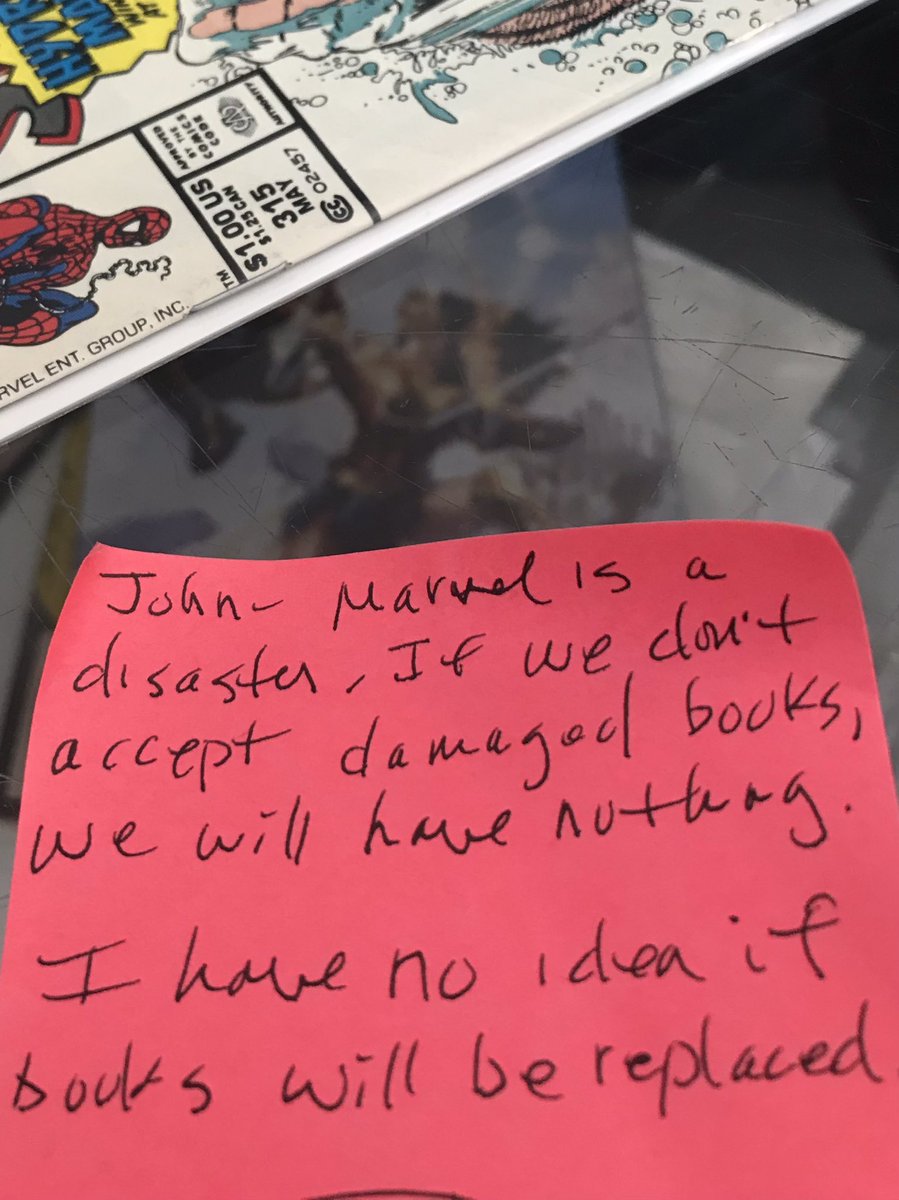 HYDRO
MA
APPROVED
BY THE
COMICS
CODE
AUTHORITY
$1.00 US
$1.25 CAN
315
MAY
CC 02457
TM
RVEL ENT. GROUP, INC.
John- Marvel is a
disaster. If we don't
accept damaged books,
we will have nothing.
I have no idea if
books will be replaced